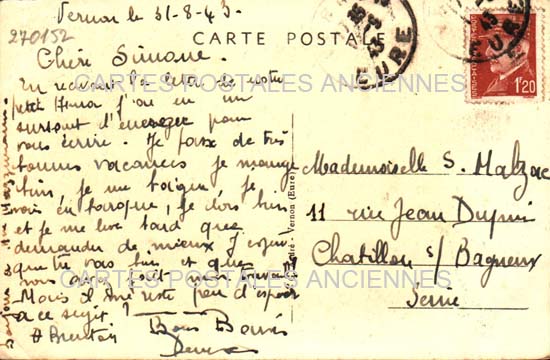 Vernon le 31-8-43.
270152
CARTE POSTALE
EURE
1f20
Chère Simone.
En recevant la lettre de notre
petit j'ai eu un
sursaut d'énergie pour
vous écrire. Je passe de très
bonnes vacances je mange
bien je me baigne je
vais en barque, je dors bien
et je me lève tard que
demander de mieux J'espère
que tu vas bien et que
vous
Mais il me reste peu d'espoir
à ce sujet !
Bons Baisers
CARTES POSTALES ANCIENNES
CARTES POSTALES ANCIENNES
Vernon (Eure)
Mademoiselle S. Malzac
11 rue Jean Dupuis
Chatillon s/ Bagneux
Seine